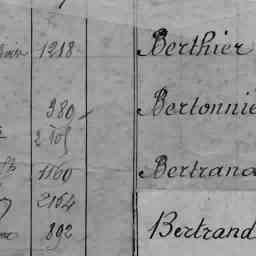 1218 Berthier
980 Bertonnie
2101
1160 Bertrand
2164
892 Bertrand